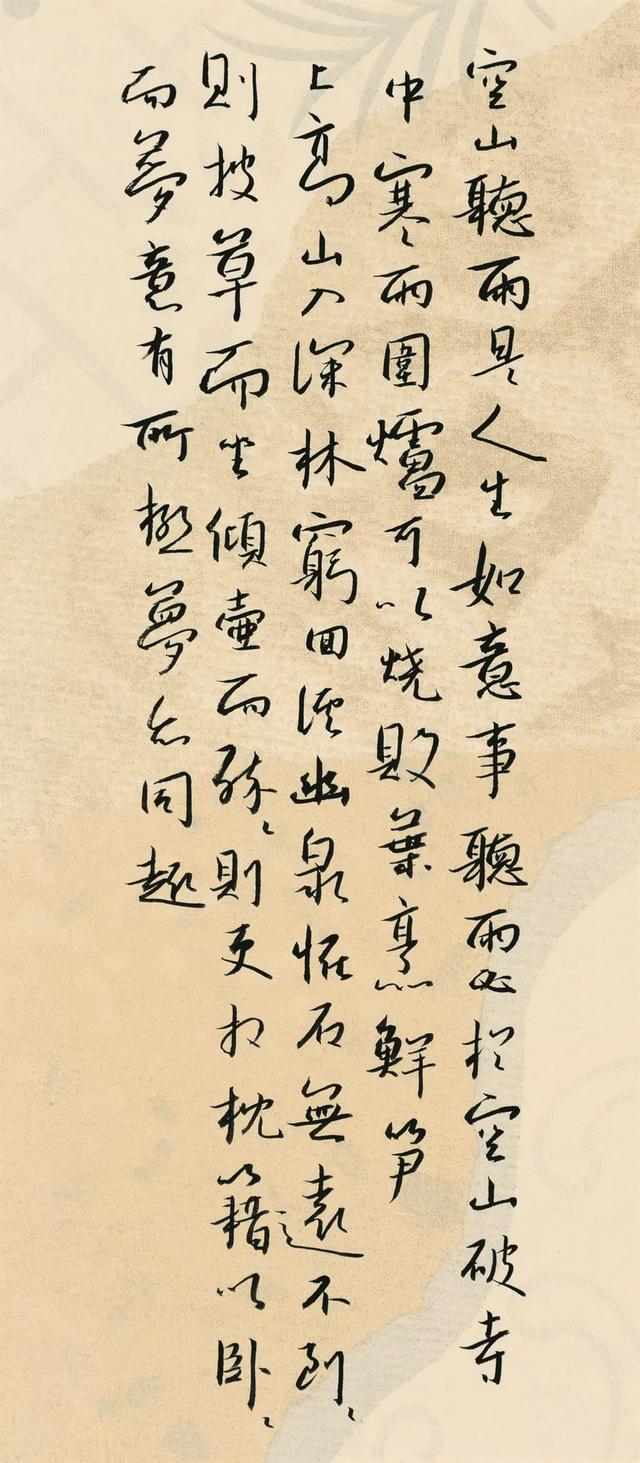 空山聽雨是人生如意事聽雨必於空山破寺
中寒雨圍爐可以燒敗葉烹鮮筍
上高山入深林窮回溪幽泉怪石無遠不到〻
則披草而坐傾壺而醉〻則更相枕籍以臥〻
而夢意有所極夢亦同趣